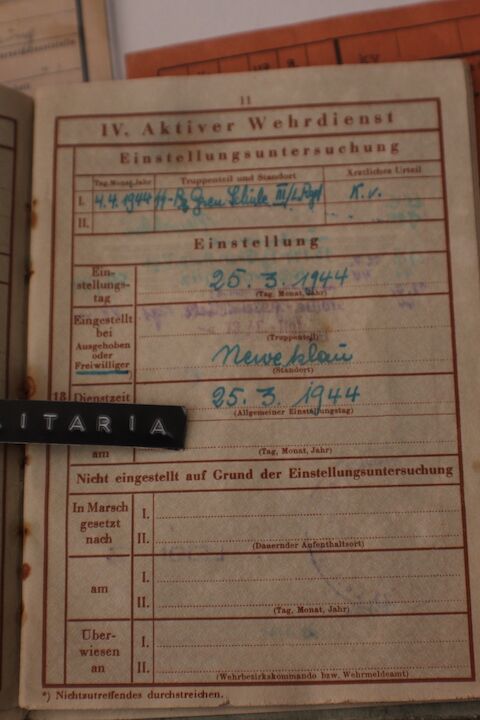 11
IV. Aktiver Wehrdienst
Einstellungsuntersuchung
Tag, Monat, Jahr Truppenteil und Standort Ärztliches Urteil
I. 4.4.1944 k.v.
II.
Einstellung
Ein-
stellungs-
tag
25. 3. 1944
(Tag, Monat, Jahr)
Eingestellt
bei
(Truppenteil)
Ausgehoben
oder
Freiwilliger
Neweklau
(Standort)
18 Dienstzeit
25. 3. 1944
(Allgemeiner Einstellungstag)
LITARIA
am
(Tag, Monat, Jahr)
Nicht eingestellt auf Grund der Einstellungsuntersuchung
In Marsch
gesetzt
nach
I.
II.
(Dauernder Aufenthaltsort)
am
I.
II.
(Tag, Monat, Jahr)
Über-
wiesen
an
I.
II.
(Wehrbezirkskommando bzw. Wehrmeldeamt)
*) Nichtzutreffendes durchstreichen.